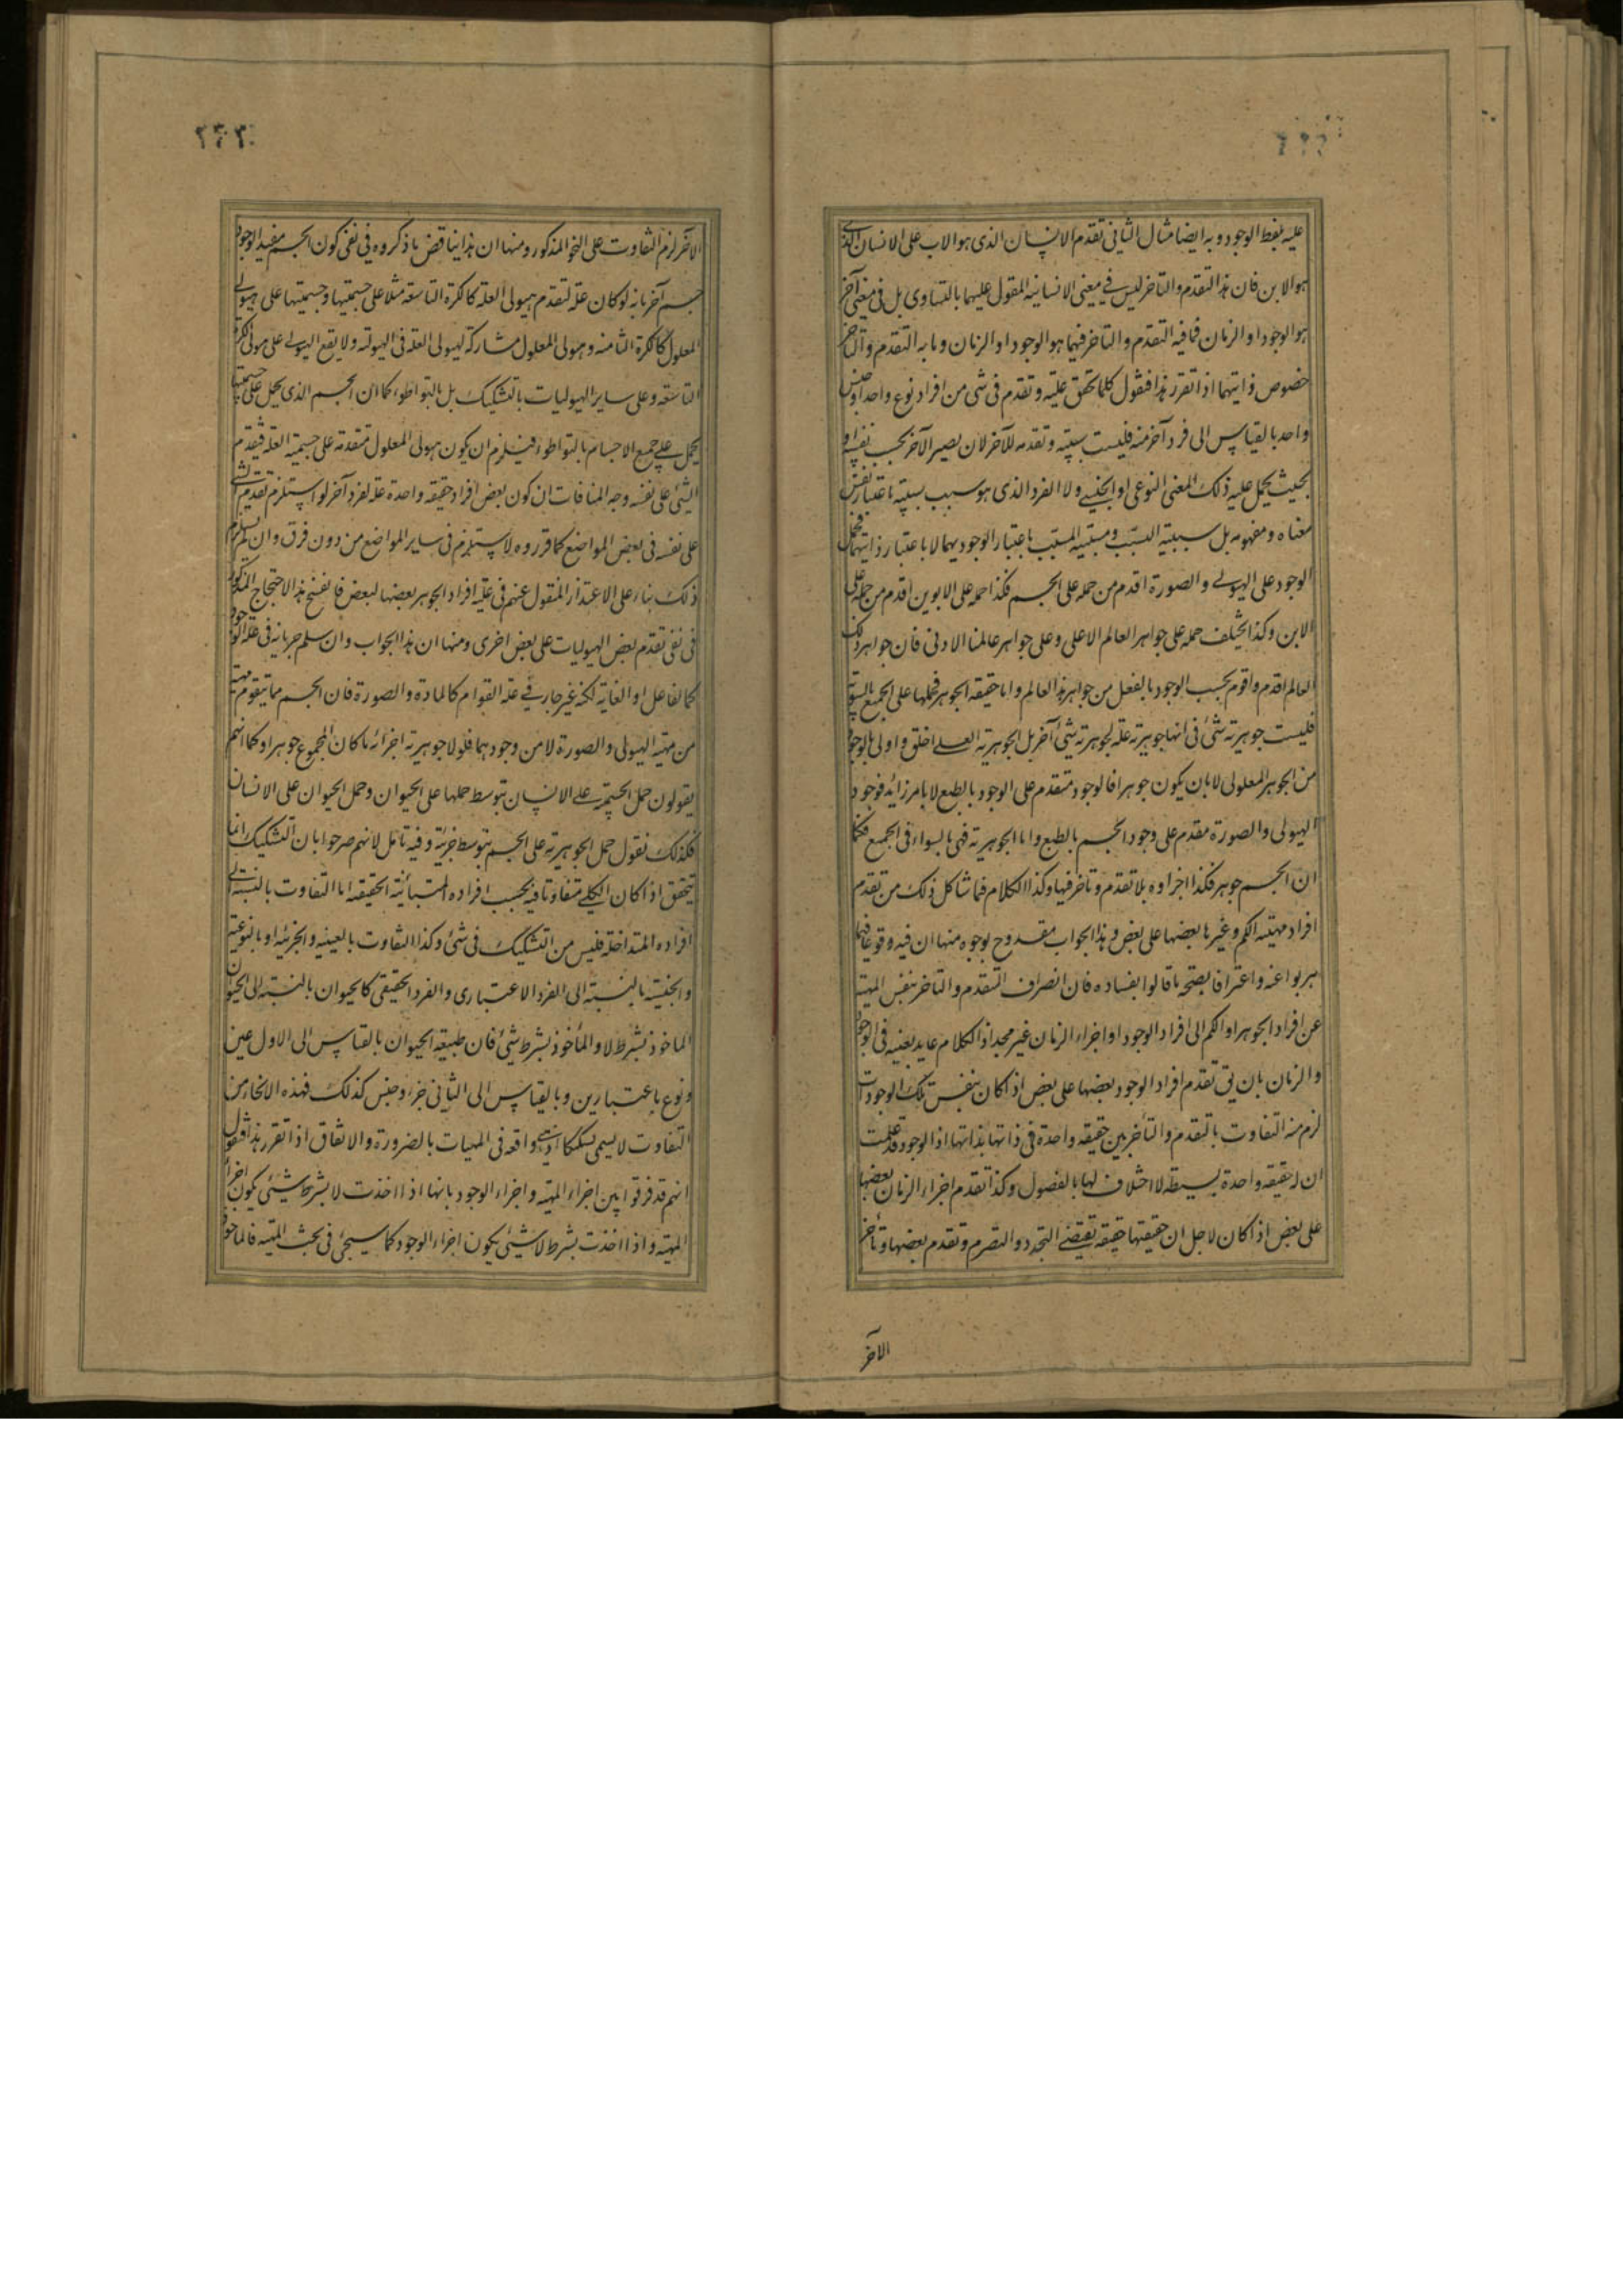 عليه بفعط الوجود وبه ايضا مثال الثانى تقدم الانسان الذى هو الاب على الانسان الذى
هو الابن فان هذا التقدم والتاخر ليس فى معنى الانسانية المقول عليهما بالتساوى بل فى معنى آخر
هو الوجود او الزمان فما فيه التقدم والتاخر فيهما هو الوجود او الزمان وما به التقدم والتاخر
خصوص ذاتيهما اذا تقرر هذا فنقول كلما تحقق علية وتقدم فى شى من افراد نوع واحد او جنس
واحد بالقياس الى فرد آخر منه فليست سببيته وتقدمه للآخر لان يصير الآخر بحسب نفسه او
بحيث يحمل عليه ذلك المعنى النوعى او الجنسى ولا الفرد الذى هو سبب سببيته باعتبار نفس
معناه ومفهومه بل سببية السبب ومسببية المسبب باعتبار الوجود بهما لا باعتبار ذاتيهما فحمل
الوجود على الهيولى والصورة اقدم من حمله على الجسم فكذا حمله على الابوين اقدم من حمله على
الابن وكذا يختلف حمله على جواهر العالم الاعلى وعلى جواهر عالمنا الادنى فان جواهر ذلك
العالم اقدم واقوم بحسب الوجود بالفعل من جواهر هذا العالم واما حقيقة الجوهر فحملها على الجميع بالسوية
فليست جوهرية شئ فى انها جوهرية علة لجوهرية شئ آخر بل الجوهرية العلى اخلق واولى بالوجود
من الجوهر المعلولى لا بان يكون جوهرا فالوجود متقدم على الوجود بالطبع لا بامر زائد فوجود
الهيولى والصورة مقدم على وجود الجسم بالطبع واما الجوهرية فهى بالسواء فى الجميع فكما
ان الجسم جوهر فكذا اجزاوه بلا تقدم وتاخر فيها وكذا الكلام فما شاكل ذلك من تقدم
افراد مهية الكم وغيرها بعضها على بعض وهذا الجواب مقدوح بوجوه منها ان فيه وقوعا فيما
هربوا عنه واعترافا بصحة ما قالوا بفساده فان انصراف التقدم والتاخر بنفس المهية
عن افراد الجوهر او الكم الى افراد الوجود او اجزاء الزمان غير مجد اذ الكلام عايد بعينه فى الوجود
والزمان بان يق تقدم افراد الوجود بعضها على بعض اذا كان بنفس تلك الوجودات
لزم منه التفاوت بالتقدم والتأخر بين حقيقة واحدة فى ذاتها بذاتها اذ الوجود قد علمت
ان له حقيقة واحدة بسيطة لا اختلاف لها بالفصول وكذا تقدم اجزاء الزمان بعضها
على بعض اذا كان لاجل ان حقيقتها حقيقة تقتضى التجدد والتصرم وتقدم بعضها وتأخر
الآخر
٢٣٢
الآخر لزم التفاوت على النحو المذكور ومنها ان هذا يناقض ما ذكروه فى نفى كون الجسم مفيد الوجود
جسم آخر بانه لو كان علة لتقدم هيولى العلة كالكرة التاسعة مثلا على جسميتها وجسميتها على هيولى
المعلول كالكرة الثامنة وهيولى المعلول مشاركة لهيولى العلة فى الهيولية ولا يقع الهيولى على هيولى الكرة
التاسعة وعلى ساير الهيوليات بالتشكيك بل بالتواطؤ كما ان الجسم الذى يحمل على جسميتها
يحمل على جميع الاجسام بالتواطؤ فيلزم ان يكون هيولى المعلول متقدمة على جسمية العلة فيتقدم
الشئ على نفسه وجه المنافات ان كون بعض افراد حقيقة واحدة علة لفرد آخر لو استلزم تقدم الشئ
على نفسه فى بعض المواضع كما قرروه لاستلزم فى ساير المواضع من دون فرق وان لم يستلزم
ذلك بناء على الاعتذار المنقول عنهم فى علية افراد الجوهر بعضها لبعض فانفسخ هذا الاحتجاج المذكور
فى نفى تقدم بعض الهيوليات على بعض اخرى ومنها ان هذا الجواب وان سلم جريانه فى علة الوجود
كالفاعل او الغاية لكنه غير جار فى علة القوام كالمادة والصورة فان الجسم مما يتقوم مهيته
من مهية الهيولى والصورة لا من وجودهما فلولا جوهرية اجزائه ما كان المجموع جوهرا وكما انهم
يقولون حمل الجسمية على الانسان بتوسط حملها على الحيوان وحمل الحيوان على الانسان
فكذلك نقول حمل الجوهرية على الجسم بتوسط جزئه وفيه تامل لانهم صرحوا بان التشكيك انما
يتحقق اذا كان الكلى متفاوتا فيه بحسب افراده المتبائنة الحقيقة اما التفاوت بالنسبة الى
افراده المتداخلة فليس من التشكيك فى شئ وكذا التفاوت بالعينية والجزئية او بالنوعية
والجنسية بالنسبة الى الفرد الاعتبارى والفرد الحقيقى كالحيوان بالنسبة الى الحيوان
الماخوذ بشرط لا والمأخوذ بشرط شئ فان طبيعة الحيوان بالقياس الى الاول عين
ونوع باعتبارين وبالقياس الى الثانى جزء وجنس كذلك فهذه الانحاء من
التفاوت لا يسمى تشكيكا اذ هى واقعة فى المهيات بالضرورة والاتفاق اذا تقرر هذا فنقول
انهم قد فرقوا بين اجزاء المهية واجزاء الوجود بانها اذا اخذت لا بشرط شئ يكون اجزاء
المهية واذا اخذت بشرط لا شئ يكون اجزاء الوجود كما سيجئ فى بحث المهية فالماخوذ